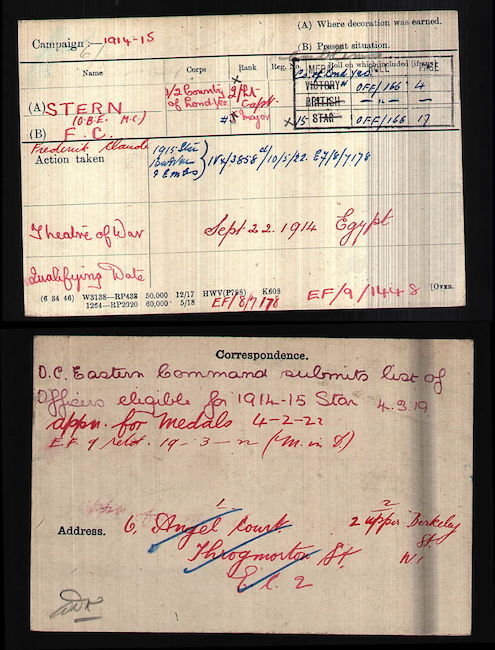 Campaign :— 1914-15
(A) Where decoration was earned.
(B) Present situation.
Name
Corps
Rank
Reg. No.
Roll on which included (if any)
Co. of Lond Yeo.
MEDAL ROLL PAGE
VICTORY OFF/166 4
BRITISH — " —
x 15 STAR OFF/166 17
(A) STERN
(O.B.E. M.C.)
(B) F. C.
Frederick Claude
1/2 County
of Lond Yeo
x
2/Lt
Capt.
Major
Action taken
1915 Star
& Embs
18x/3858 d/10/5/22. E7/8/7178
Theatre of War
Sept 22. 1914 Egypt
Qualifying Date
(6 34 46) W3138—RP438 50,000 12/17 HWV(P798) K608
1264—RP2020 60,000 5/18
EF/8/7178
EF/9/1444 8
[OVER.
Correspondence.
O.C. Eastern Command submits list of
Officers eligible for 1914-15 Star 4.3.19
appn. for Medals 4-2-22
E.F. 9 retd. 19-3-22 (M. in D.)
1
2
Address.
6, Angel Court
Throgmorton St.
E.C. 2
2 Upper Berkeley
St.
W1